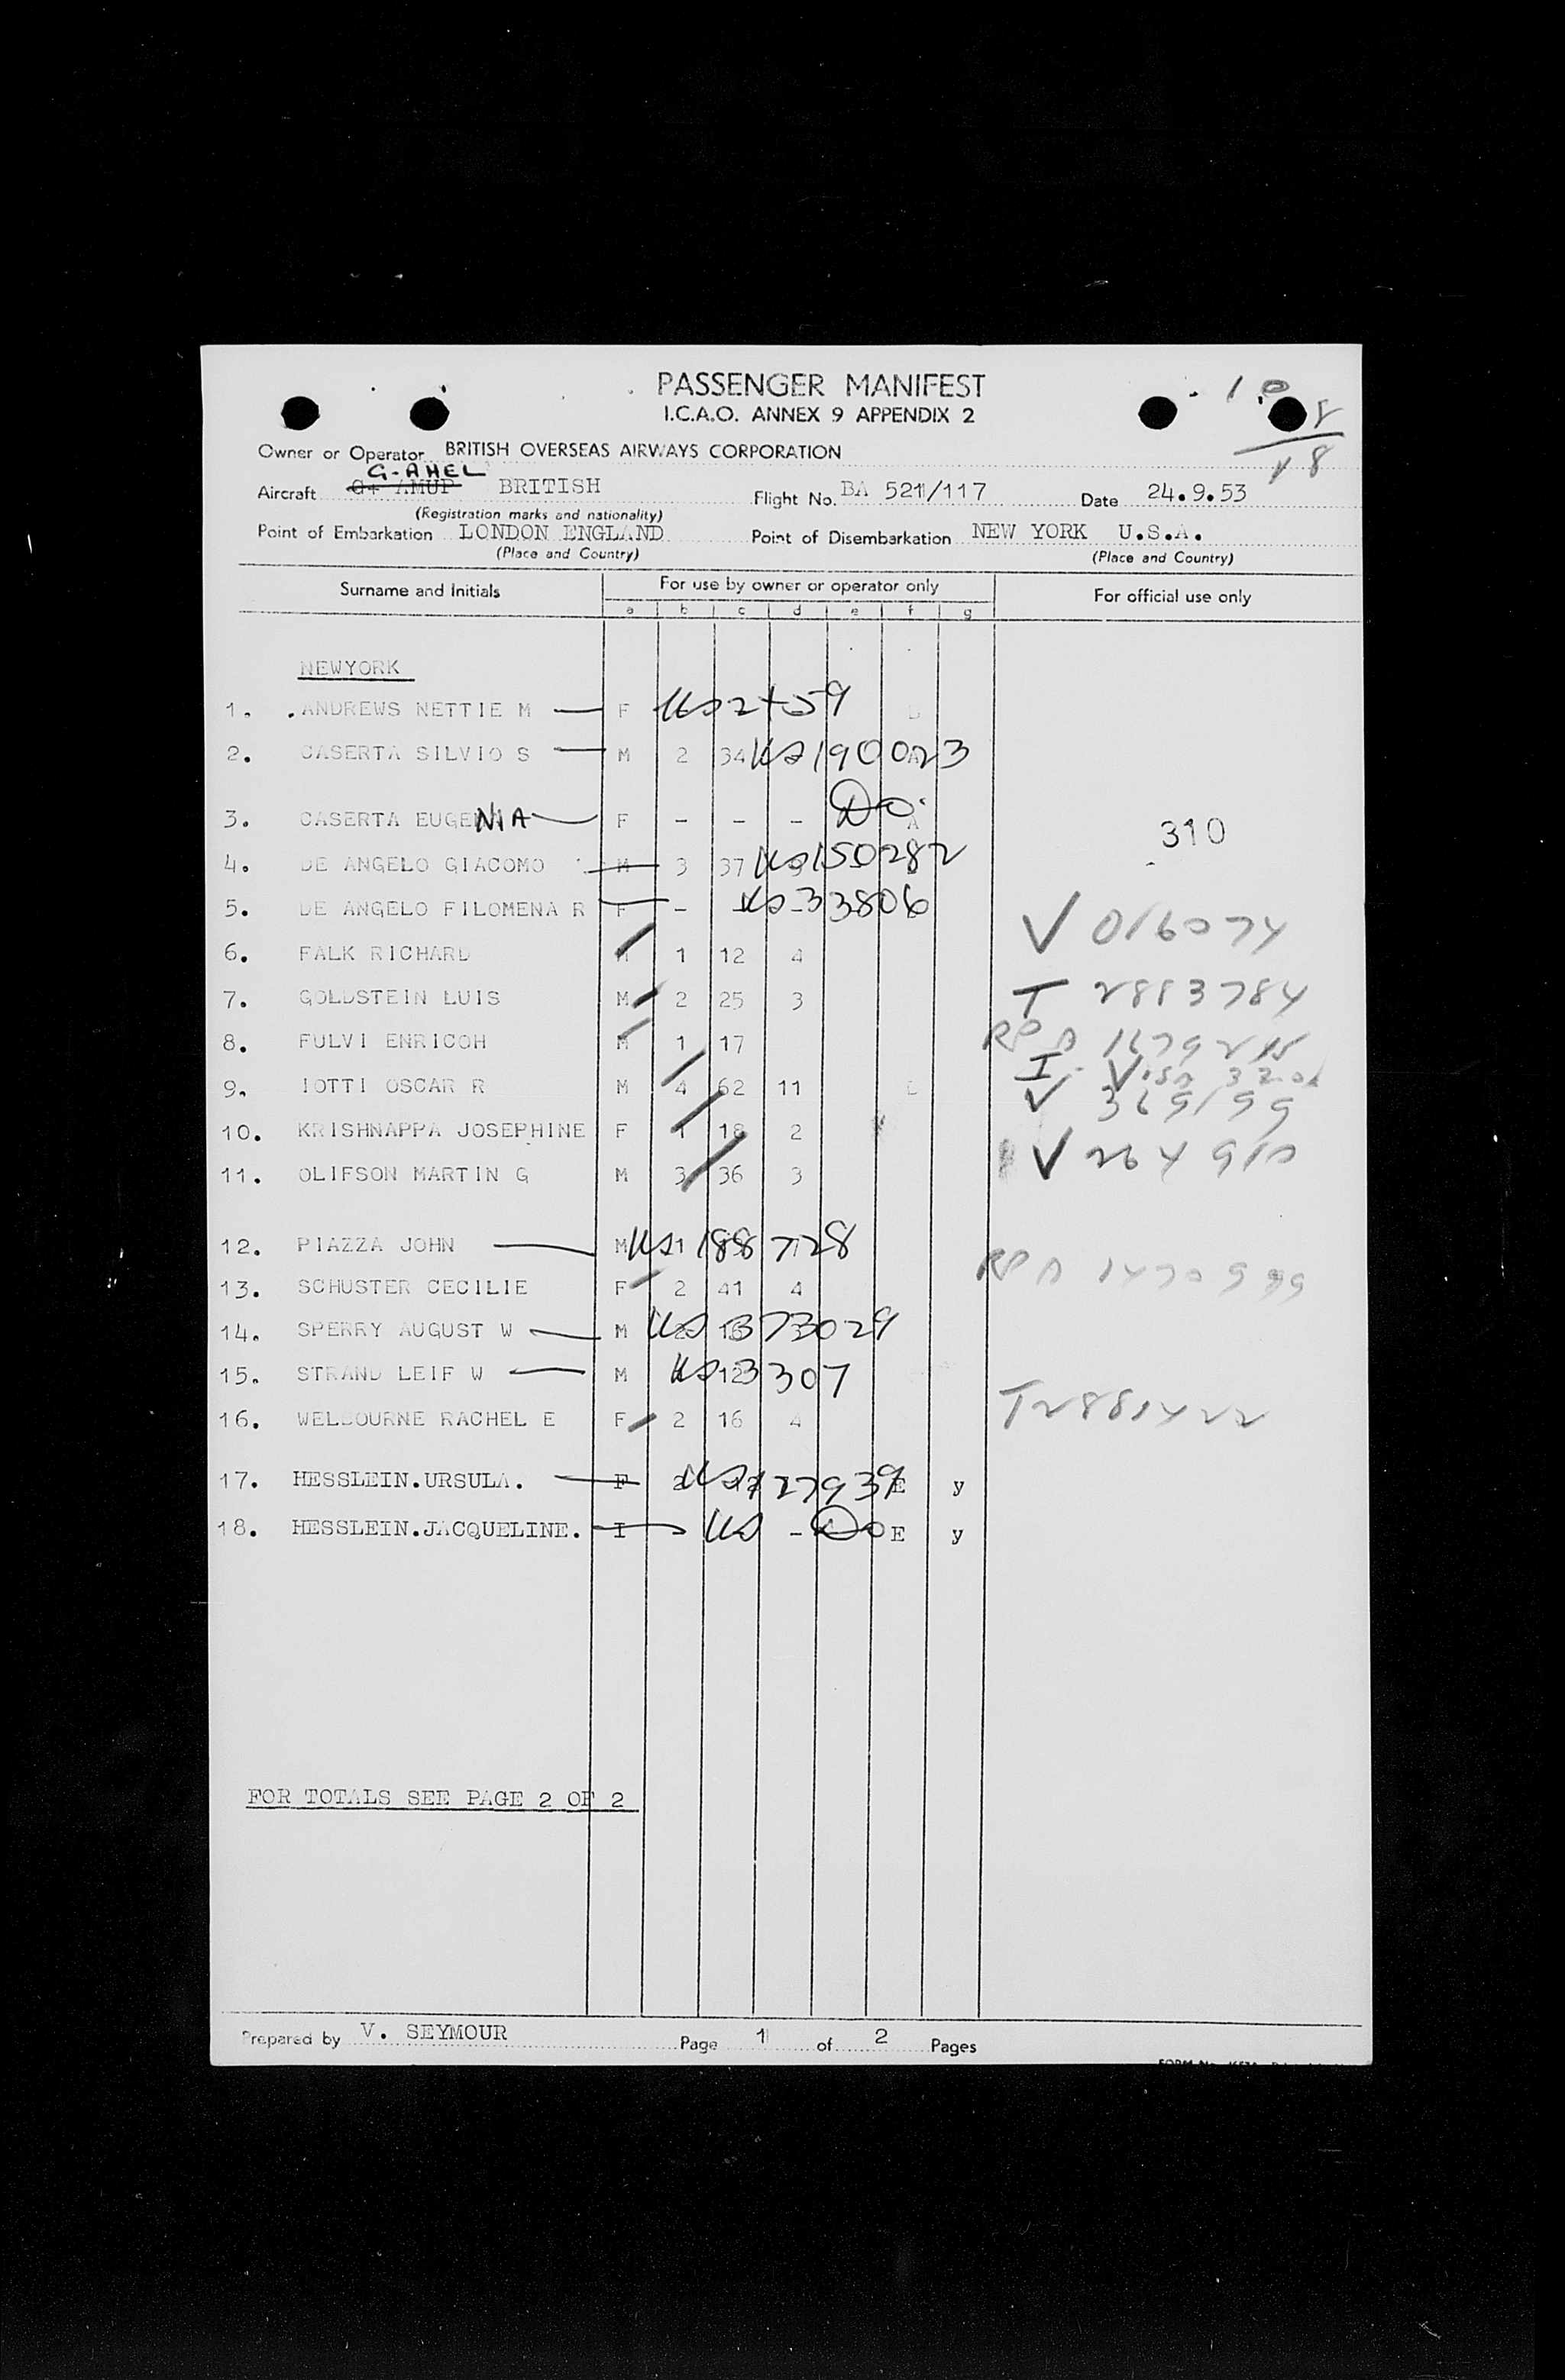 PASSENGER MANIFEST
I.C.A.O. ANNEX 9 APPENDIX 2
10
8
18
Owner or Operator BRITISH OVERSEAS AIRWAYS CORPORATION
G-AHEL
Aircraft G+ AMUP BRITISH Flight No. BA 521/117 Date 24.9.53
(Registration marks and nationality)
Point of Embarkation LONDON ENGLAND Point of Disembarkation NEW YORK U.S.A.
(Place and Country) (Place and Country)
Surname and Initials For use by owner or operator only For official use only
a b c d e f g
NEWYORK
1. ANDREWS NETTIE M F US
2. CASERTA SILVIO S M 2 34 US 190023
3. CASERTA EUGENIA F - - - Do. A
310
4. DE ANGELO GIACOMO M 3 37 US 150282
5. DE ANGELO FILOMENA R F - US 33806
6. FALK RICHARD M 1 12 4 V 016074
7. GOLDSTEIN LUIS M 2 25 3 T 2883784
8. FULVI ENRICOH M 1 17 RP A
I. Visa
9. IOTTI OSCAR R M 4 62 11 V 369199
10. KRISHNAPPA JOSEPHINE F 1 18 2 V 264910
11. OLIFSON MARTIN G M 3 36 3
12. PIAZZA JOHN M US 188728
13. SCHUSTER CECILIE F 2 41 4 RP A 1470599
14. SPERRY AUGUST W M US 373029
15. STRAND LEIF W M US 3307
16. WELBOURNE RACHEL E F 2 16 4 T2881422
17. HESSLEIN.URSULA. F US 127939 E y
18. HESSLEIN.JACQUELINE. I - US - Do E y
FOR TOTALS SEE PAGE 2 OF 2
Prepared by V. SEYMOUR Page 1 of 2 Pages